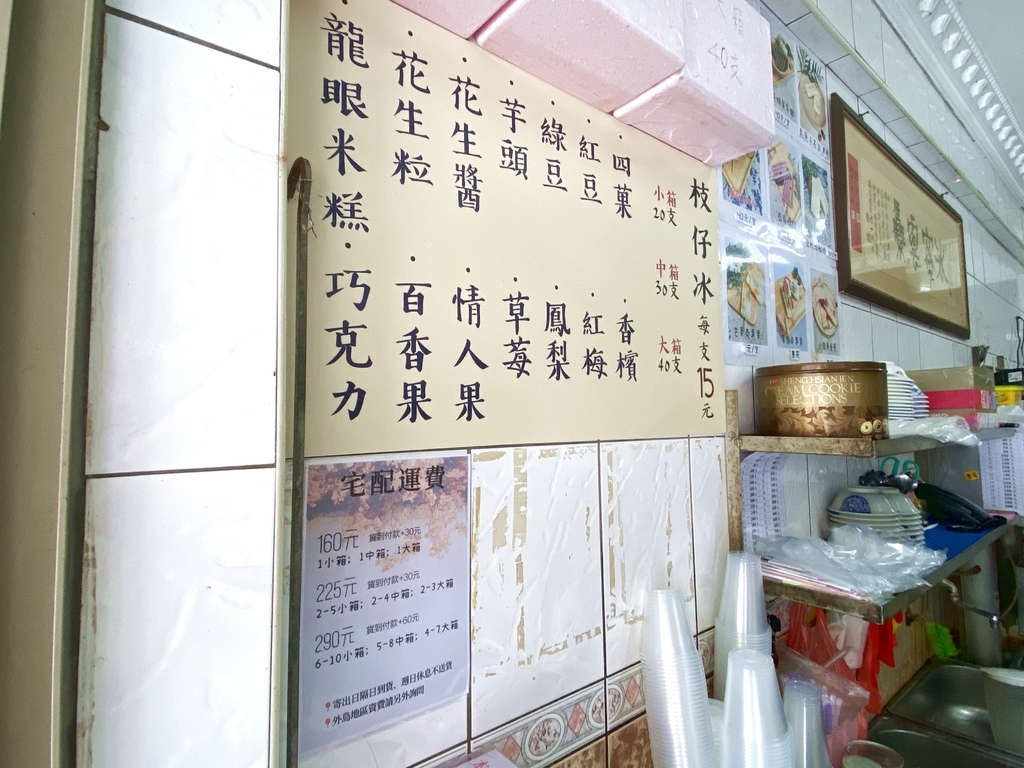 枝仔冰 每支15元
小箱20支
中箱30支
大箱40支
·四菓
·香檳
·紅豆
·紅梅
·綠豆
·鳳梨
·芋頭
·草莓
·花生醬
·情人果
·花生粒
·百香果
·龍眼米糕
·巧克力
40支
宅配運費
160元 貨到付款+30元
1小箱；1中箱；1大箱
225元 貨到付款+30元
2-5小箱；2-4中箱；2-3大箱
290元 貨到付款+60元
6-10小箱；5-8中箱；4-7大箱
寄出日隔日到貨、週日休息不送貨
外島地區資費請另外詢問
SHENG HSIANG JEN
CREAM COOKIE
SELECTIONS